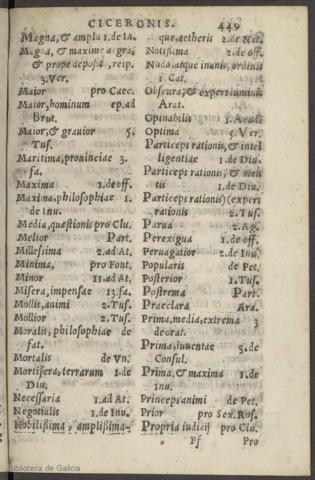 CICERONIS. 449
Magna, & ampla 1. de In.
Magna, & maxime agra,
& prope deposit, resp.
3. Ver.
Maior pro Caec.
Maior, hominum ep. ad
Brut.
Maior, & grauior 5.
Tus.
Maritima, prouinciae 3.
fa.
Maxima 1. de off.
Maxima, philosophiae 1.
de Inu.
Media, quaestionis pro Clu.
Melior Part.
Millesima 2. ad At.
Minima, pro Font.
Minor 11. ad At.
Misera, impensae 13. fa.
Mollis, animi 2. Tus.
Mollior 2. Tus.
Moralis, philosophiae de
fat.
Mortalis de Vn.
Mortifera, terrarum 1. de
Diu.
Necessaria 1. ad At.
Negotialis 1. de Inu.
Nobilißima, amplißima-
que, aetheris 2. de Nat.
Notißima 2. de off.
Nudo, atque inunis, ordinis
1. Cat.
Obscura, & expers luminis
Arat.
Opinabilis 1. Acad.
Optima 5. Ver.
Particeps rationis, & intel
ligentiae 1. de Diu.
Particeps rationis, & men
tis 1. de Diu.
Particeps rationis) (expers
rationis 2. Tus.
Parua 2. Ag.
Perexigua 1. de off.
Peruagatior 2. de Inu.
Popularis de Pet.
Posterior 1. Tus.
Postrema Part.
Praeclara Ara.
Prima, media, extrema 3
de orat.
Prima, iuuentae 3. de
Consul.
Prima, & maxima 1. de
inu.
Princeps animi de Pet.
Prior pro Sex. Ros.
Propria iudicij pro Clu.
Ff Pro
Biblioteca de Galicia